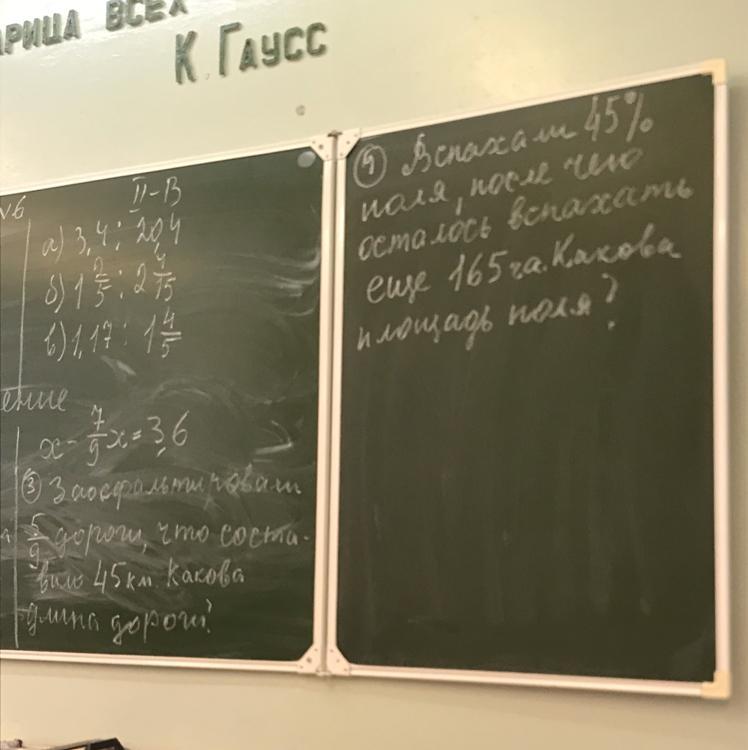 АРИЦА ВСЕХ
К. ГАУСС
№6
II-В
а) 3,4 : 20,4
б) 1 2/5 : 2 4/15
в) 1,17 : 1 4/5
ение
x - 7/9 x = 3,6
③ Заасфальтировали
5/9 дороги, что соста-
вило 45 км. Какова
длина дороги?
④ Вспахали 45%
поля, после чего
осталось вспахать
еще 165 га. Какова
площадь поля?